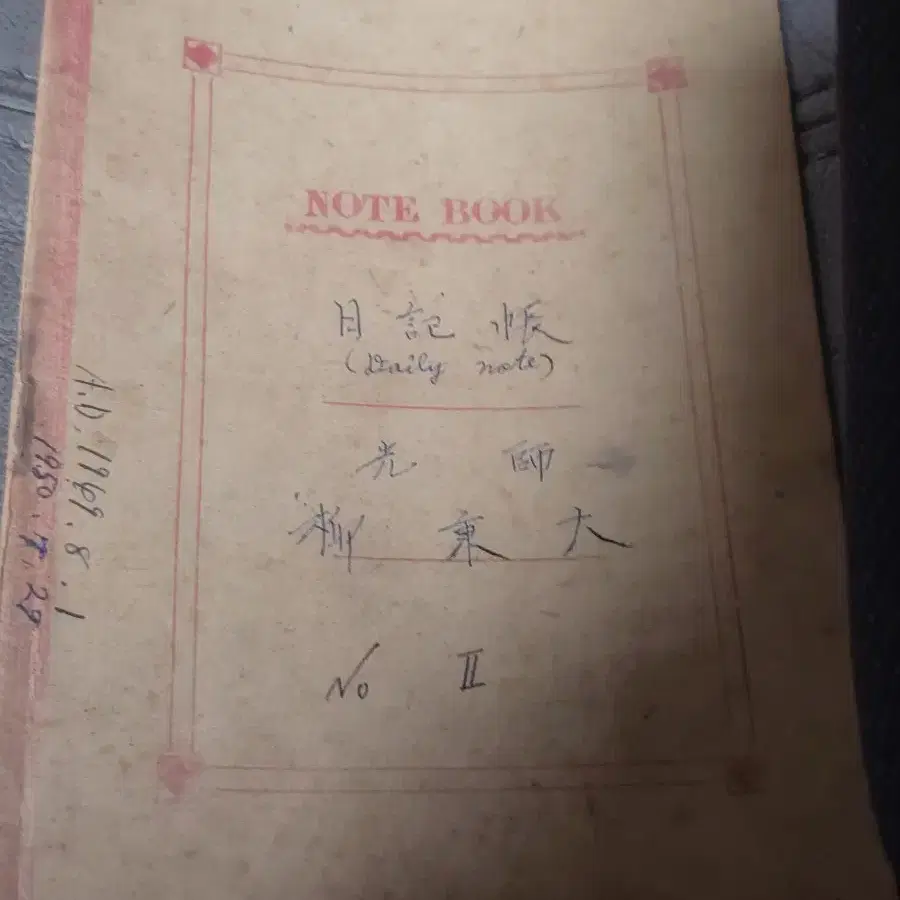 NOTE BOOK
日記帳
(Daily note)
光師
柳秉大
No II
A.D. 1969. 8. 1
1950. 7. 29